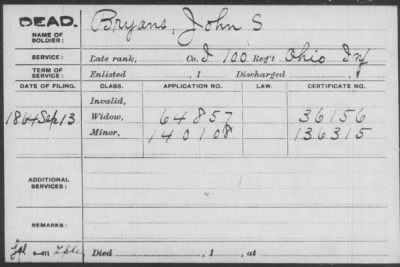 DEAD. Bryans, John S
NAME OF SOLDIER:
SERVICE: Late rank, Co. I 100 Reg't Ohio Inf
TERM OF SERVICE: Enlisted , 1 Discharged , 1
DATE OF FILING. CLASS. APPLICATION NO. LAW. CERTIFICATE NO.
Invalid,
1864 Sep 13 Widow, 64857 36156
Minor, 140108 136315
ADDITIONAL SERVICES:
REMARKS:
Died , 1 , at